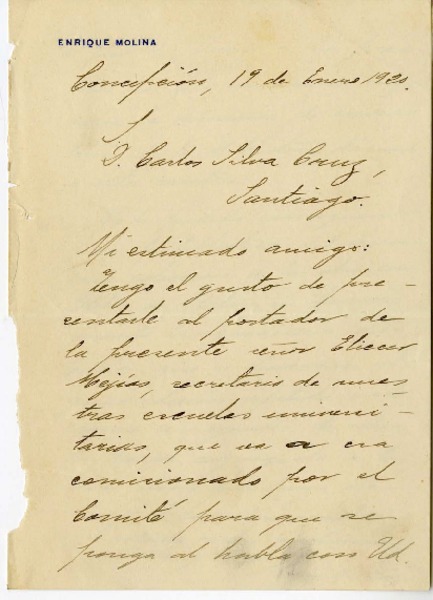 ENRIQUE MOLINA
Concepción, 19 de Enero 1920.
S.
D. Carlos Silva Cruz,
Santiago.
Mi estimado amigo:
Tengo el gusto de pre-
sentarle al portador de
la presente señor Eliecer
Mejías, secretario de nues
tras escuelas universi-
tarias, que va a esa
comisionado por el
Comité para que se
ponga al habla con Ud.